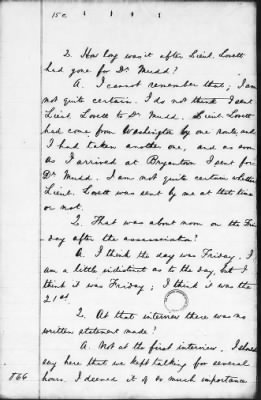 15 c.
Q. How long was it after Lieut. Lovett
had gone for Dr Mudd?
A. I cannot remember that; I am
not quite certain. I do not think I sent
Lieut Lovett to Dr Mudd. Lieut. Lovett
had come from Washington by one route, and
I had taken another one, and as soon
as I arrived at Bryantown I sent for
Dr Mudd. I am not quite certain whether
Lieut. Lovett was sent by me at that time
or not.
Q. That was about noon on the Fri-
day after the assassination?
A. I think the day was Friday. I
am a little indistinct as to the day, but I
think it was Friday; I think it was the
21st.
Q. At that interview there was no
written statement made?
A. Not at the first interview. I should
say here that we kept talking for several
hours. I deemed it of so much importance
866